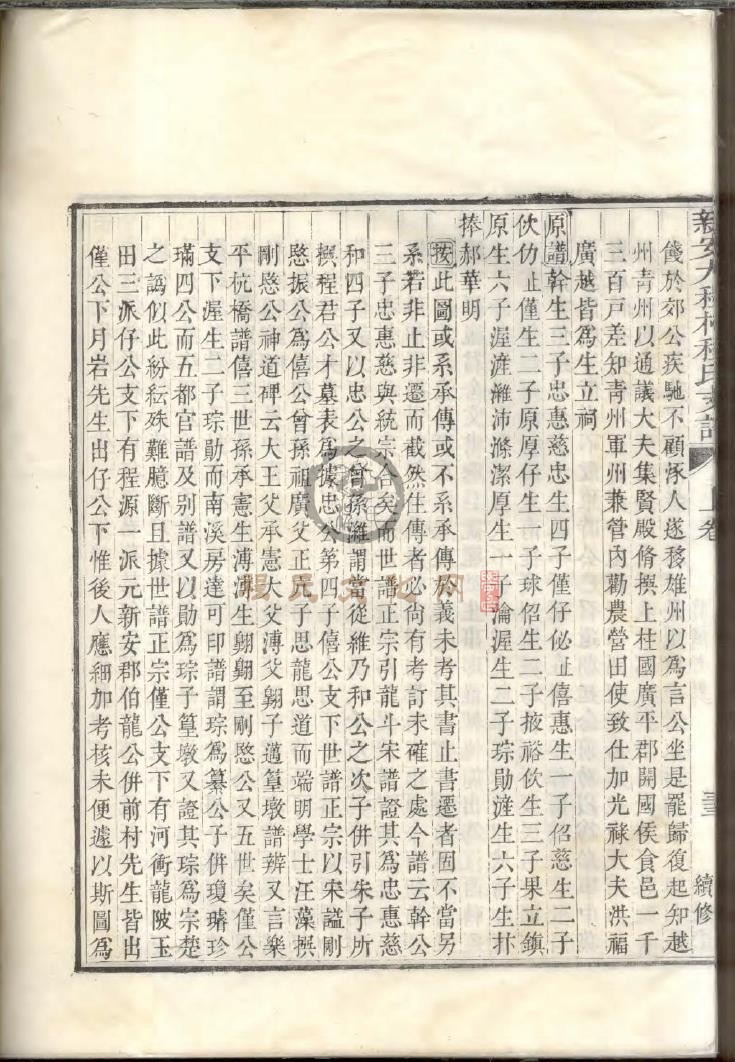 新安大程村程氏支譜
上卷
續修
餞於郊公疾馳不顧涿人遂移雄州以爲言公坐是罷歸復起知越
州青州以通議大夫集賢殿脩撰上柱國廣平郡開國侯食邑一千
三百戸差知青州軍州兼管內勸農營田使致仕加光祿大夫洪福
廣越皆爲生立祠
原譜幹生三子忠惠慈忠生四子僅仔佖止僖惠生一子佋慈生二子
佽仂止僅生二子原厚仔生一子球佋生二子掖裕佽生三子果立鎮
原生六子渥漄濰沛滌潔厚生一子瀹渥生二子琮勛漄生六子生抃
捧郝華明
按此圖或系承傳或不系承傳於義未考其書止書遷者固不當另
系若非止非遷而截然住傳者必尙有考訂未確之處今譜云幹公
三子忠惠慈與統宗合矣而世譜正宗引龍斗宋譜證其爲忠惠慈
和四子又以忠公之曾孫濰謂當從維乃和公之次子併引朱子所
撰程君公才墓表爲據忠公第四子僖公支下世譜正宗以宋謚剛
愍振公爲僖公曾孫祖廣父正凡子思龍思道而端明學士汪藻撰
剛愍公神道碑云大王父承憲大父溥父翺子邁篁墩譜辨又言樂
平杭橋譜僖三世孫承憲生溥溥生翺翺至剛愍公又五世矣僅公
支下渥生二子琮勛而南溪房達可印譜謂琮爲纂公子併瓊璿珍
璊四公而五都官譜及別譜又以勛爲琮子篁墩又證其琮爲宗楚
之譌似此紛紜殊難臆斷且據世譜正宗僅公支下有河衝龍陂玉
田三派仔公支下有程源一派元新安郡伯龍公併前村先生皆出
僅公下月岩先生出仔公下惟後人應細加考核未便遽以斯圖爲